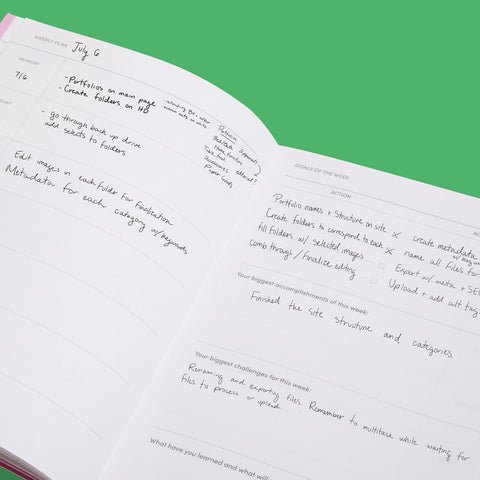 WEEKLY PLAN July 6
MONDAY
7/6
- Portfolios on main page
- Create folders on HD
- go through back up drive
add selects to folders
Edit images in each folder for
Metadata for each category w/ keywords
Home, Furniture
Tech, Food
Accessories
Paper Goods
GOALS OF THE WEEK
ACTION
Portfolio names + Structure on site X
Create folders to correspond to each X
fill folders w/ selected images
comb through / finalise editing
create metadata
name all files for
Export w/ meta + SEO
Upload + add alt tag
Your biggest accomplishments of this week:
Finished the site structure and categories
Your biggest challenges for this week:
Renaming and exporting files. Remember to multitask while waiting for
files to process or upload.
What have you learned and what will